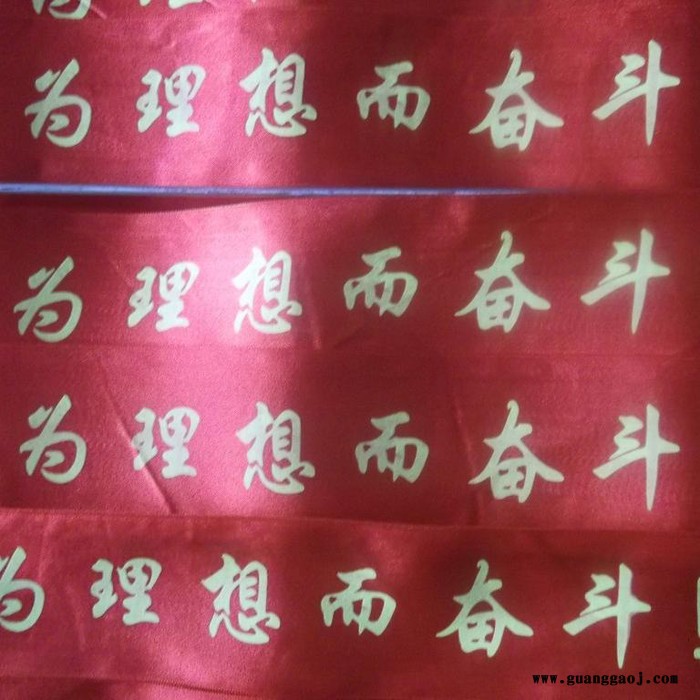 为理想而奋斗
为理想而奋斗
为理想而奋斗
为理想而奋斗!
www.guanggaoj.com